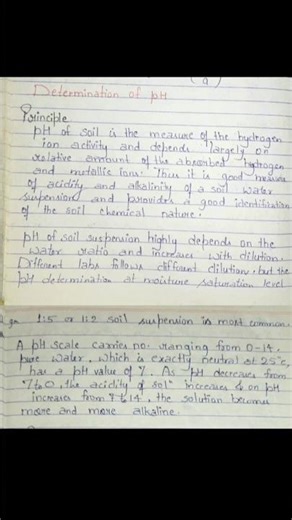 (9)
Determination of pH
Principle
pH of soil is the measure of the hydrogen
ion activity and depends largely on
relative amount of the absorbed hydrogen
and metallic ions. Thus it is good measure
of acidity and alkalinity of a soil water
suspension and provides a good identification
of the soil chemical nature.
pH of soil suspension highly depends on the
water ratio and increases with dilution.
Different labs follows different dilution. but the
pH determination at moisture saturation level
1:5 or 1:2 soil suspension is most common.
A pH scale carries no. ranging from 0-14.
pure water, which is exactly neutral at 25°c,
has a pH value of 7. As pH decreases from
7 to 0, the acidity of solⁿ increases & on pH
increases from 7 to 14, the solution becomes
more and more alkaline.